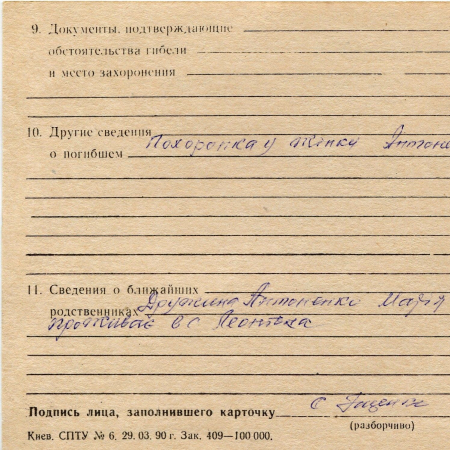 9. Документы, подтверждающие
обстоятельства гибели
и место захоронения
10. Другие сведения
о погибшем Похоронка у жінки Антоне
11. Сведения о ближайших
родственниках Дружина Антоненко Марія
проживає в с. Леонівка
Подпись лица, заполнившего карточку
(разборчиво)
Киев. СПТУ № 6. 29. 03. 90 г. Зак. 409—100 000.